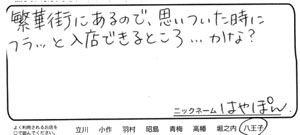 繁華街にあるので、思いついた時に
フラッと入店できるところ…かな?
ニックネーム はやぽん
よく利用されるお店を
○で囲んでください。 立川 小作 羽村 昭島 青梅 高幡 堀之内 八王子